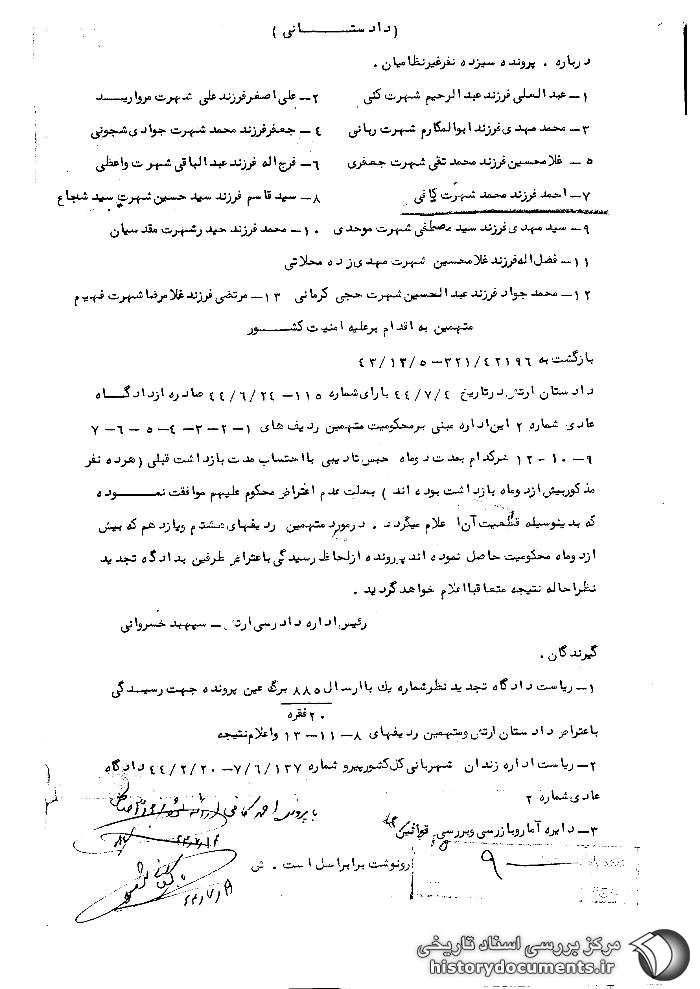 (دادستانی)
درباره . پرونده سیزده نفر غیرنظامیان .
۱- عبدالعلی فرزند عبدالرحیم شهرت کنی ۲- علی اصغر فرزند علی شهرت مروارید
۳- محمد مهدی فرزند ابوالمکارم شهرت ربانی ۴- جعفر فرزند محمد شهرت جوادی شجونی
۵- غلامحسین فرزند محمد تقی شهرت جعفری ۶- فرج اله فرزند عبدالباقی شهرت واعظی
۷- احمد فرزند محمد شهرت کافی ۸- سید قاسم فرزند سید حسین شهرت سید شجاع
۹- سید مهدی فرزند سید مصطفی شهرت موحدی ۱۰- محمد فرزند حیدر شهرت مقدسیان
۱۱- فضل اله فرزند غلامحسین شهرت مهدی زده محلاتی
۱۲- محمد جواد فرزند عبدالحسین شهرت حجی کرمانی ۱۳- مرتضی فرزند غلامرضا شهرت فهیم
متهمین به اقدام برعلیه امنیت کشور
بازگشت به ۳۲۱/۴۲۱۹۶-۴۳/۱۲/۵
دادستان ارتش در تاریخ ۴۴/۷/۴ بارای شماره ۱۱۵-۴۴/۶/۲۴ صادره از دادگاه
عادی شماره ۲ این اداره مبنی بر محکومیت متهمین ردیف های ۱-۲-۳-۴-۵-۶-۷
۹-۱۰-۱۲ هرکدام بمدت دوماه حبس تادیبی بااحتساب مدت بازداشت قبلی (هرده نفر
مذکور بیش از دوماه بازداشت بوده اند) بعلت عدم اعتراض محکوم علیهم موافقت نموده
که بدینوسیله قطعیت آن اعلام میگردد . در مورد متهمین ردیفهای هشتم ویازدهم که بیش
از دوماه محکومیت حاصل نموده اند پرونده ازلحاظ رسیدگی باعتراض طرفین بدادگاه تجدید
نظر احاله نتیجه متعاقبا اعلام خواهد گردید .
رئیس اداره دادرسی ارتش - سپهبد خسروانی
گیرندگان .
۱- ریاست دادگاه تجدید نظر شماره یک باارسال ۸۸۵ برگ عین پرونده جهت رسیدگی
۲۰ فقره
باعتراض دادستان ارتش ومتهمین ردیفهای ۸-۱۱-۱۳ واعلام نتیجه
۲- ریاست اداره زندان شهربانی کل کشور پیرو شماره ۷/۶/۱۳۷-۴۴/۲/۲۰ دادگاه
عادی شماره ۲
۳- دایره آمار وبازرسی وبررسی قوانین
رونوشت برابر اصل است . ش
۹
مرکز بررسی اسناد تاریخی
historydocuments.ir